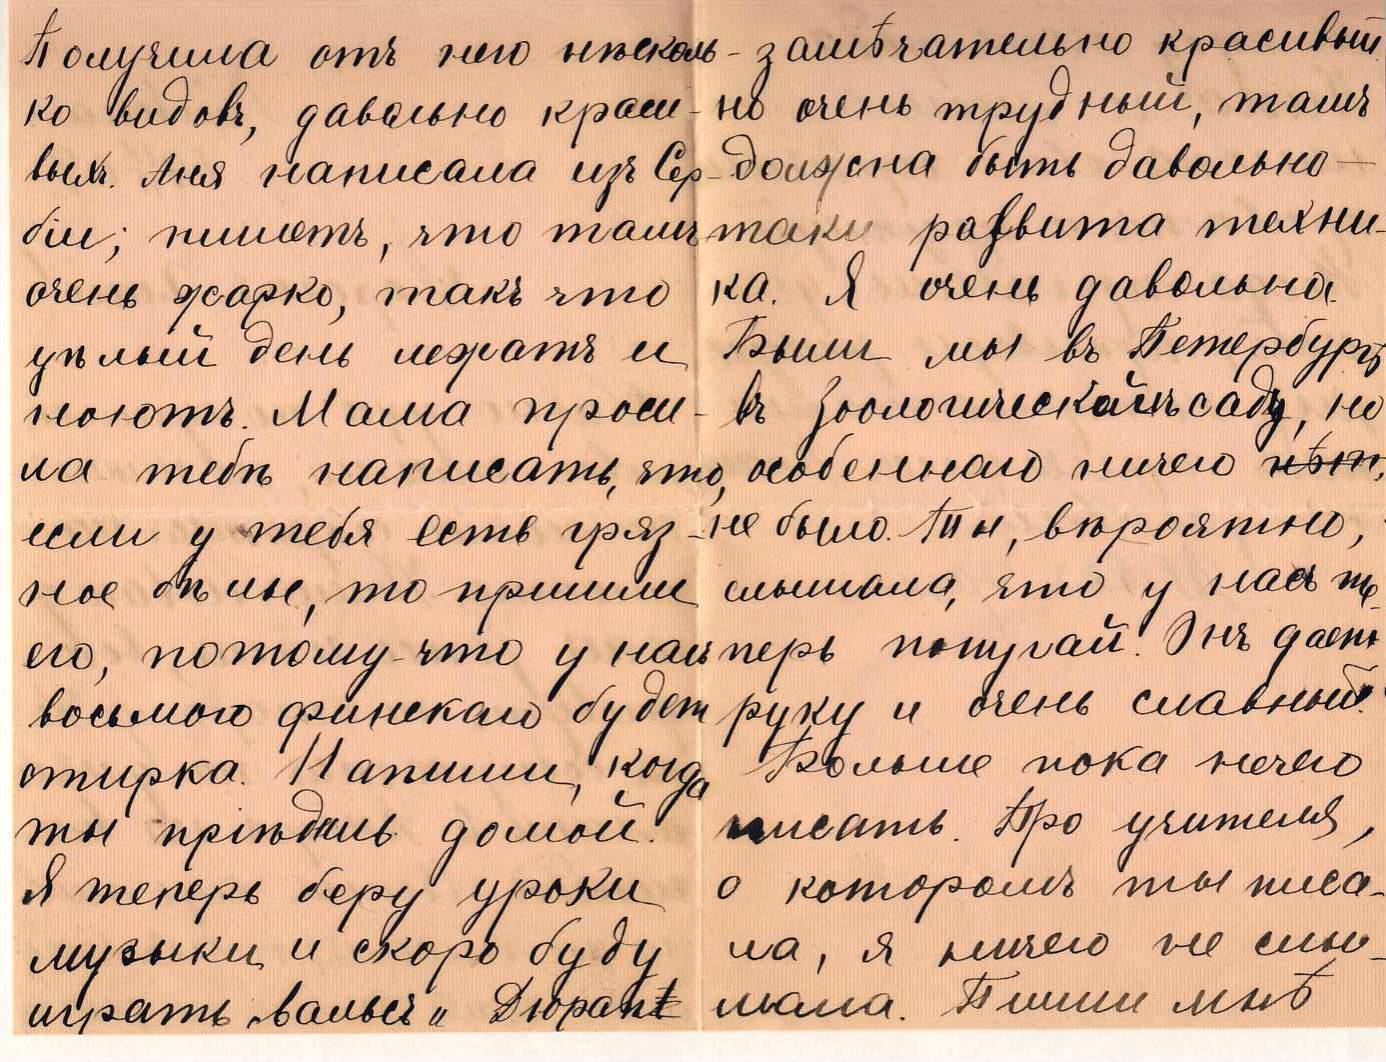 Получила отъ него нѣсколь-
ко видовъ, давольно краси-
выхъ. Аня написала изъ Сер-
біи; пишетъ, что тамъ
очень жарко, такъ что
цѣлый день лежатъ и
ноютъ. Мама проси-
ла тебѣ написать, что,
если у тебя есть гряз-
ное бѣлье, то пришли
его, потому-что у насъ
восьмого финскаго будет
стирка. Напиши, когда
ты пріѣдешь домой.
Я теперь беру уроки
музыки и скоро буду
играть „вальсъ" Дюранt
замѣчательно красивый
но очень трудный, тамъ
должена быть давольно-
таки развита техни-
ка. Я очень давольна.
Были мы въ Петербургѣ
въ Зоологическомъ саду, но
особеннаго ничего нѣтъ,
не было. Ты, вѣроятно,
слышала, что у насъ те-
перь попугай. Онъ даетъ
руку и очень славный.
Больше пока нечего
писать. Про учителя,
о которомъ ты писа-
ла, я ничего не слы-
шала. Пиши мнѣ